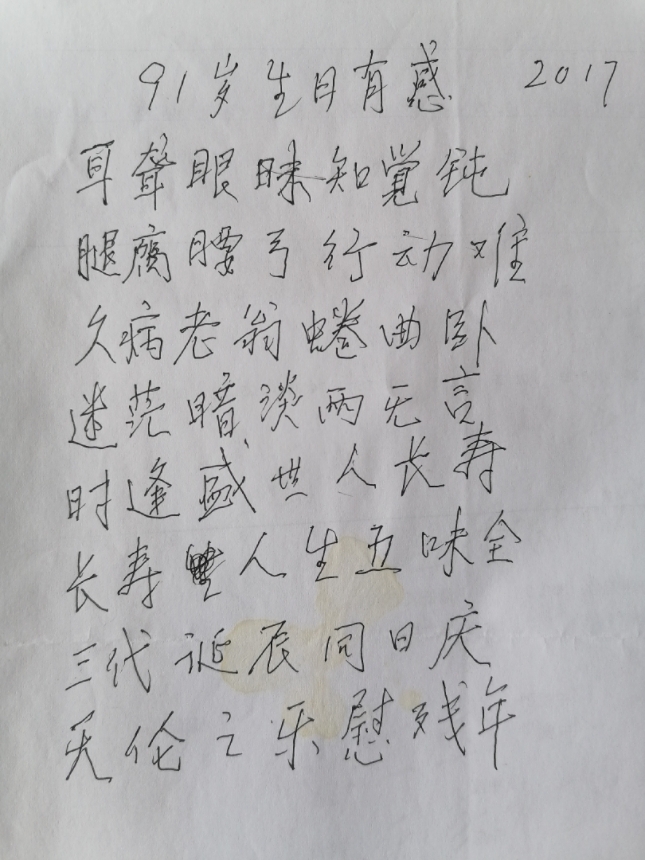 91岁生日有感 2017
耳聋眼昧知觉钝
腿腐腰弓行动难
久病老翁蜷曲卧
迷茫暗淡两无言
时逢盛世人长寿
长寿人生五味全
三代诞辰同日庆
天伦之乐慰残年